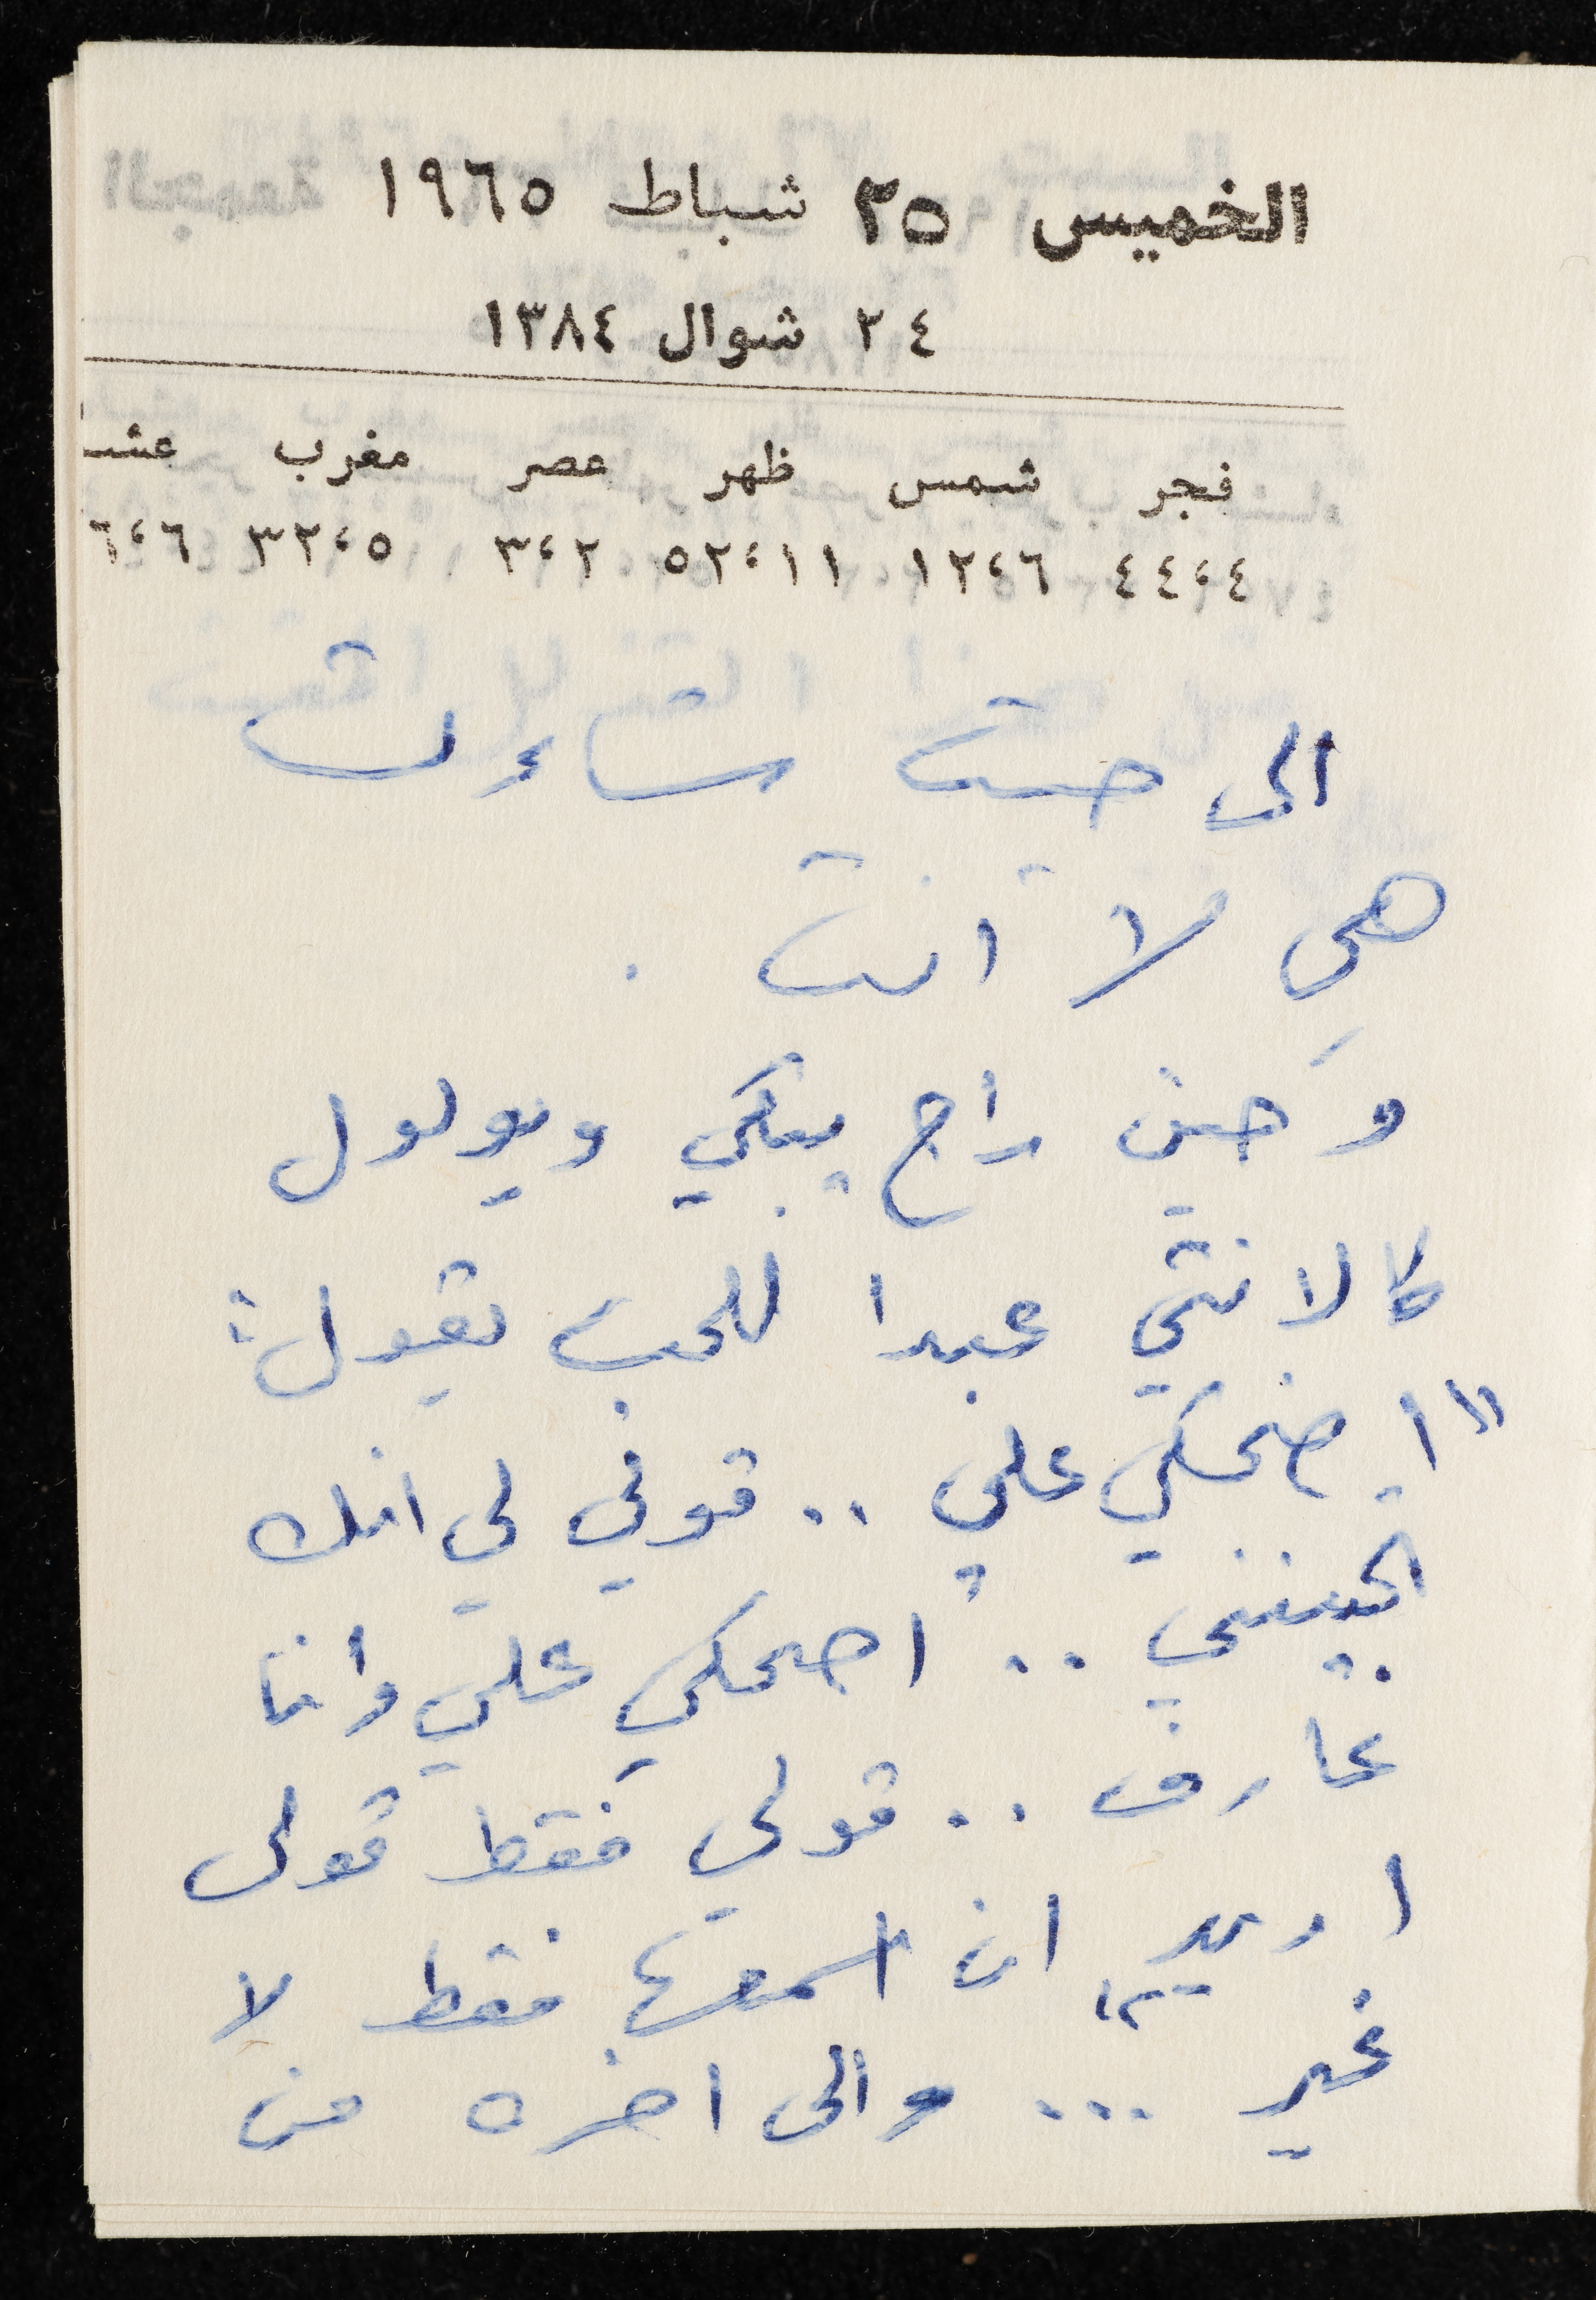 الخميس ٢٥ شباط ١٩٦٥
٢٤ شوال ١٣٨٤
فجر شمس ظهر عصر مغرب عشـ
٤٤،٤ ١٢،٦ ٥٢،١١ ٣،٢ ٣٢،٥ ٦،٦
الى حيث شاءت
هي لا انت .
وحين راح يبكي ويولول
كالانثى عبدا للحب يقول :
"اضحكي علي .. قولي لي انك
تحبينني .. اضحكي علي وانا
عارف .. قولي فقط قولي
اريد ان اسمعها فقط لا
غير ... " والى اخره من